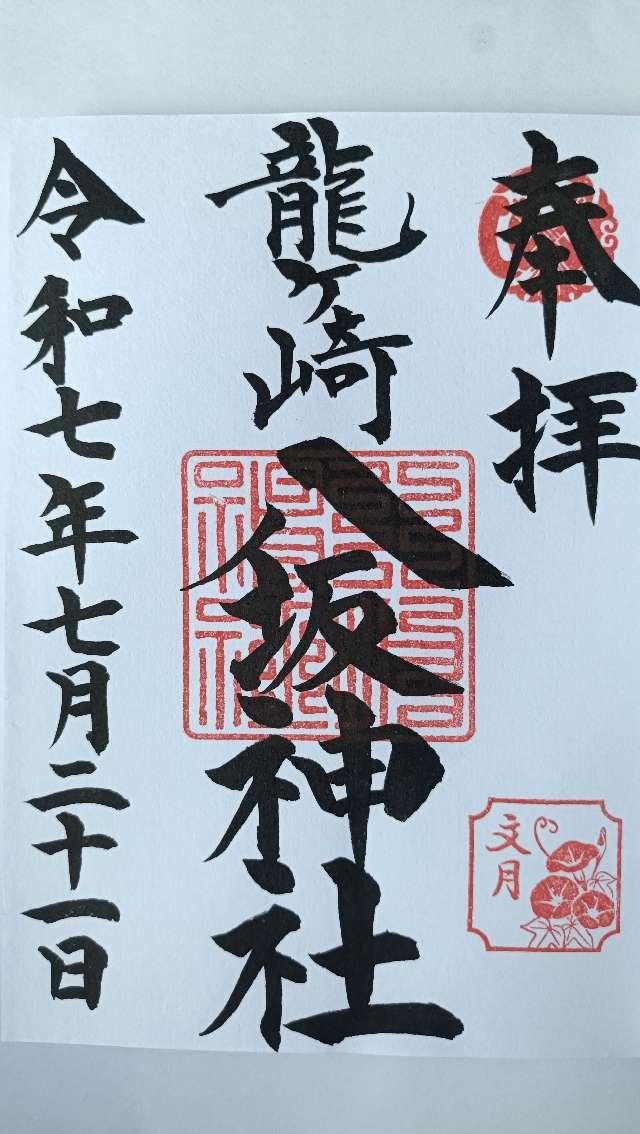 奉拝
龍ケ崎
八坂神社
令和七年七月二十一日
文月